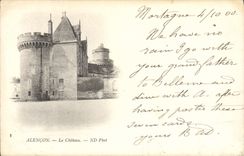 Mortagne 4/10.00.
We have no
rain I go with
your grand-father
to Bellême and
dine with A. after
having posted these
seven cards.
yours B
1
ALENÇON. - Le Château. - ND Phot